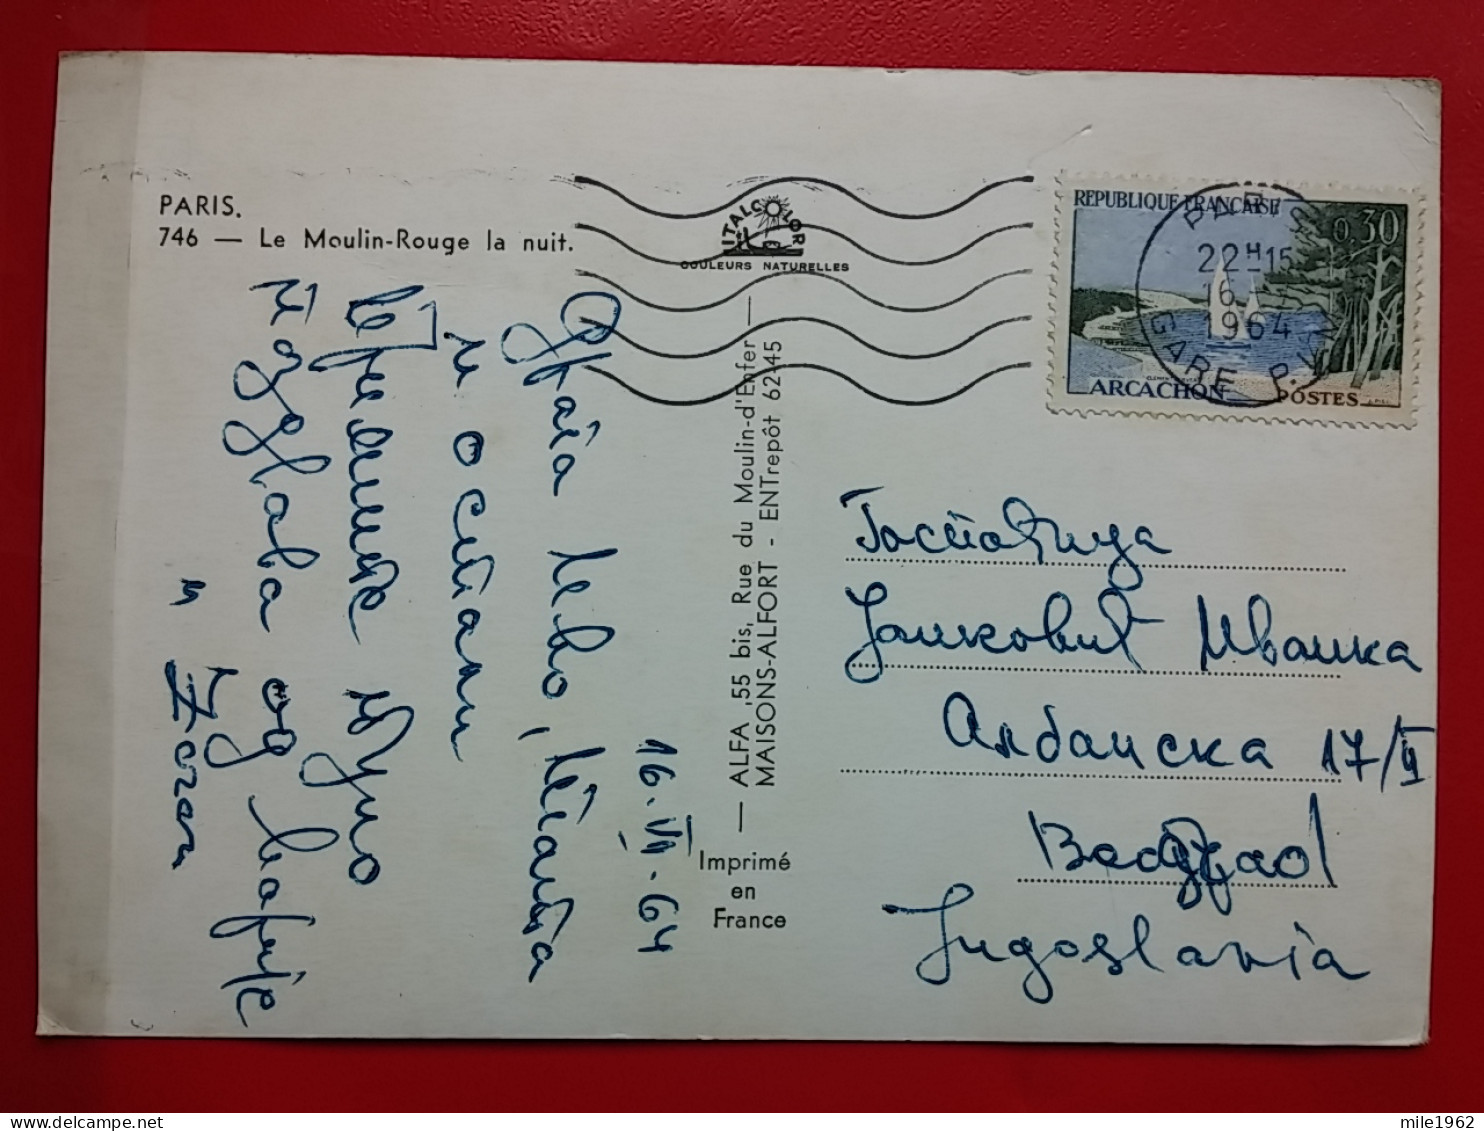 PARIS.
746 — Le Moulin-Rouge la nuit.
ITALCOLOR
COULEURS NATURELLES
REPUBLIQUE FRANÇAISE
0,30
ARCACHON
POSTES
PARIS
22H15
16
1964
GARE P.
— ALFA ,55 bis, Rue du Moulin-d'Enfer —
MAISONS-ALFORT - ENTrepôt 62-45
Imprimé
en
France
16.VII.64
Драга
и остали
Поздрава од
и Зоран
Јанковић Иванка
Албанска 17/II
Београд
Jugoslavia
mile1962